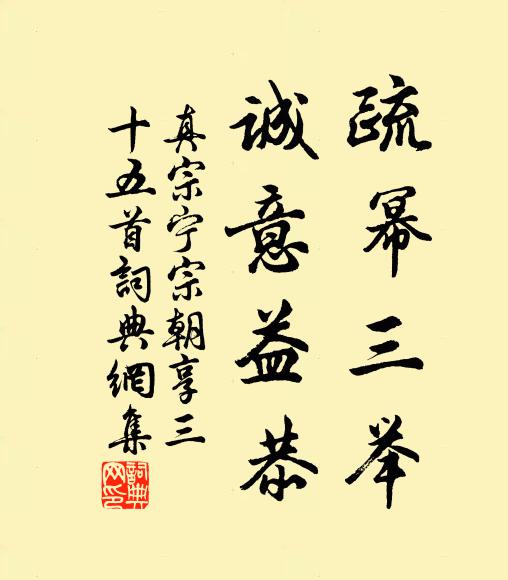 疏幂三举
诚意益恭
真宗宁宗朝享三
十五首詞典網集
詞典
网印